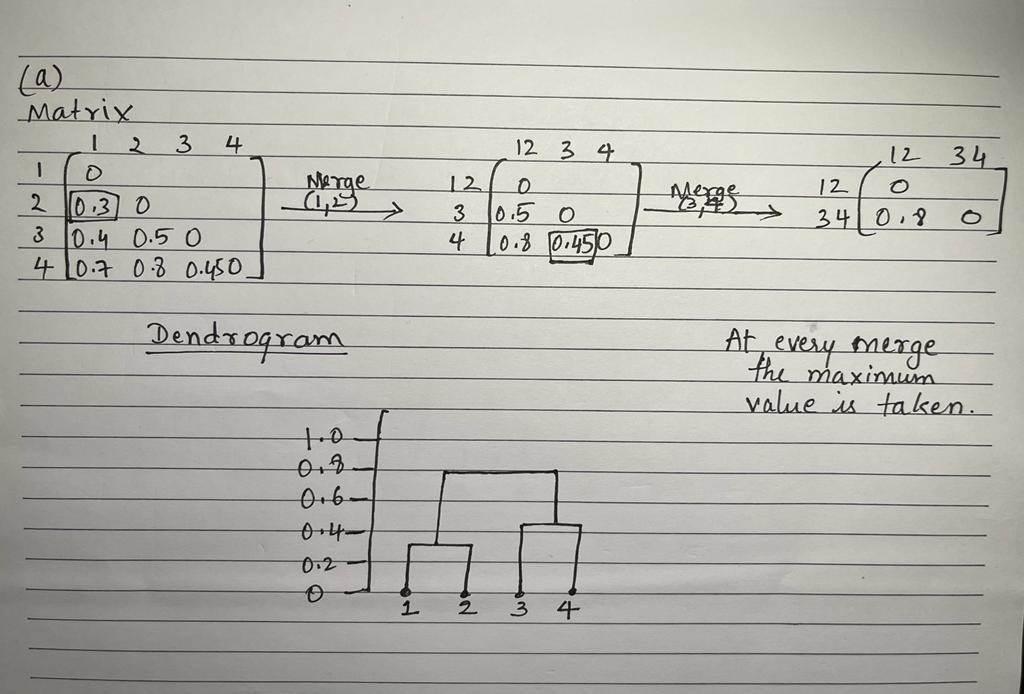 (a)
Matrix
1 2 3 4
1 0
2 0.3 0
3 0.4 0.5 0
4 0.7 0.8 0.45 0
Merge
(1,2)
12 3 4
12 0
3 0.5 0
4 0.8 0.45 0
Merge
(3,4)
12 34
12 0
34 0.8 0
Dendrogram
At every merge
the maximum
value is taken.
1.0
0.8
0.6
0.4
0.2
0
1 2 3 4